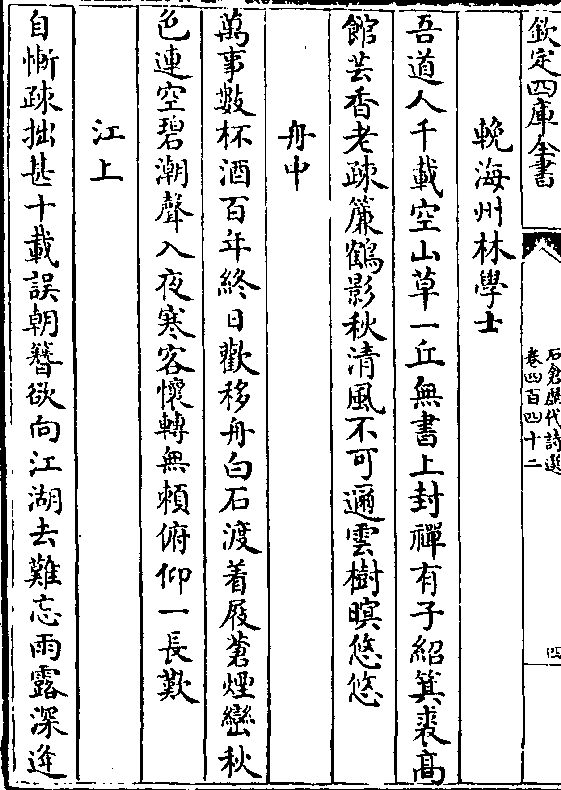 欽定四庫全書
石倉歷代詩選
卷四百四十二
四
輓海州林學士
吾道人千載空山草一丘無書上封禪有子紹箕裘高
館芸香老疎簾鶴影秋清風不可邇雲樹暝悠悠
舟中
萬事數杯酒百年終日歡移舟白石渡着屐蒼煙巒秋
色連空碧潮聲入夜寒客懷轉無賴俯仰一長歎
江上
自慚疎拙甚十載誤朝簪欲向江湖去難忘雨露深逆